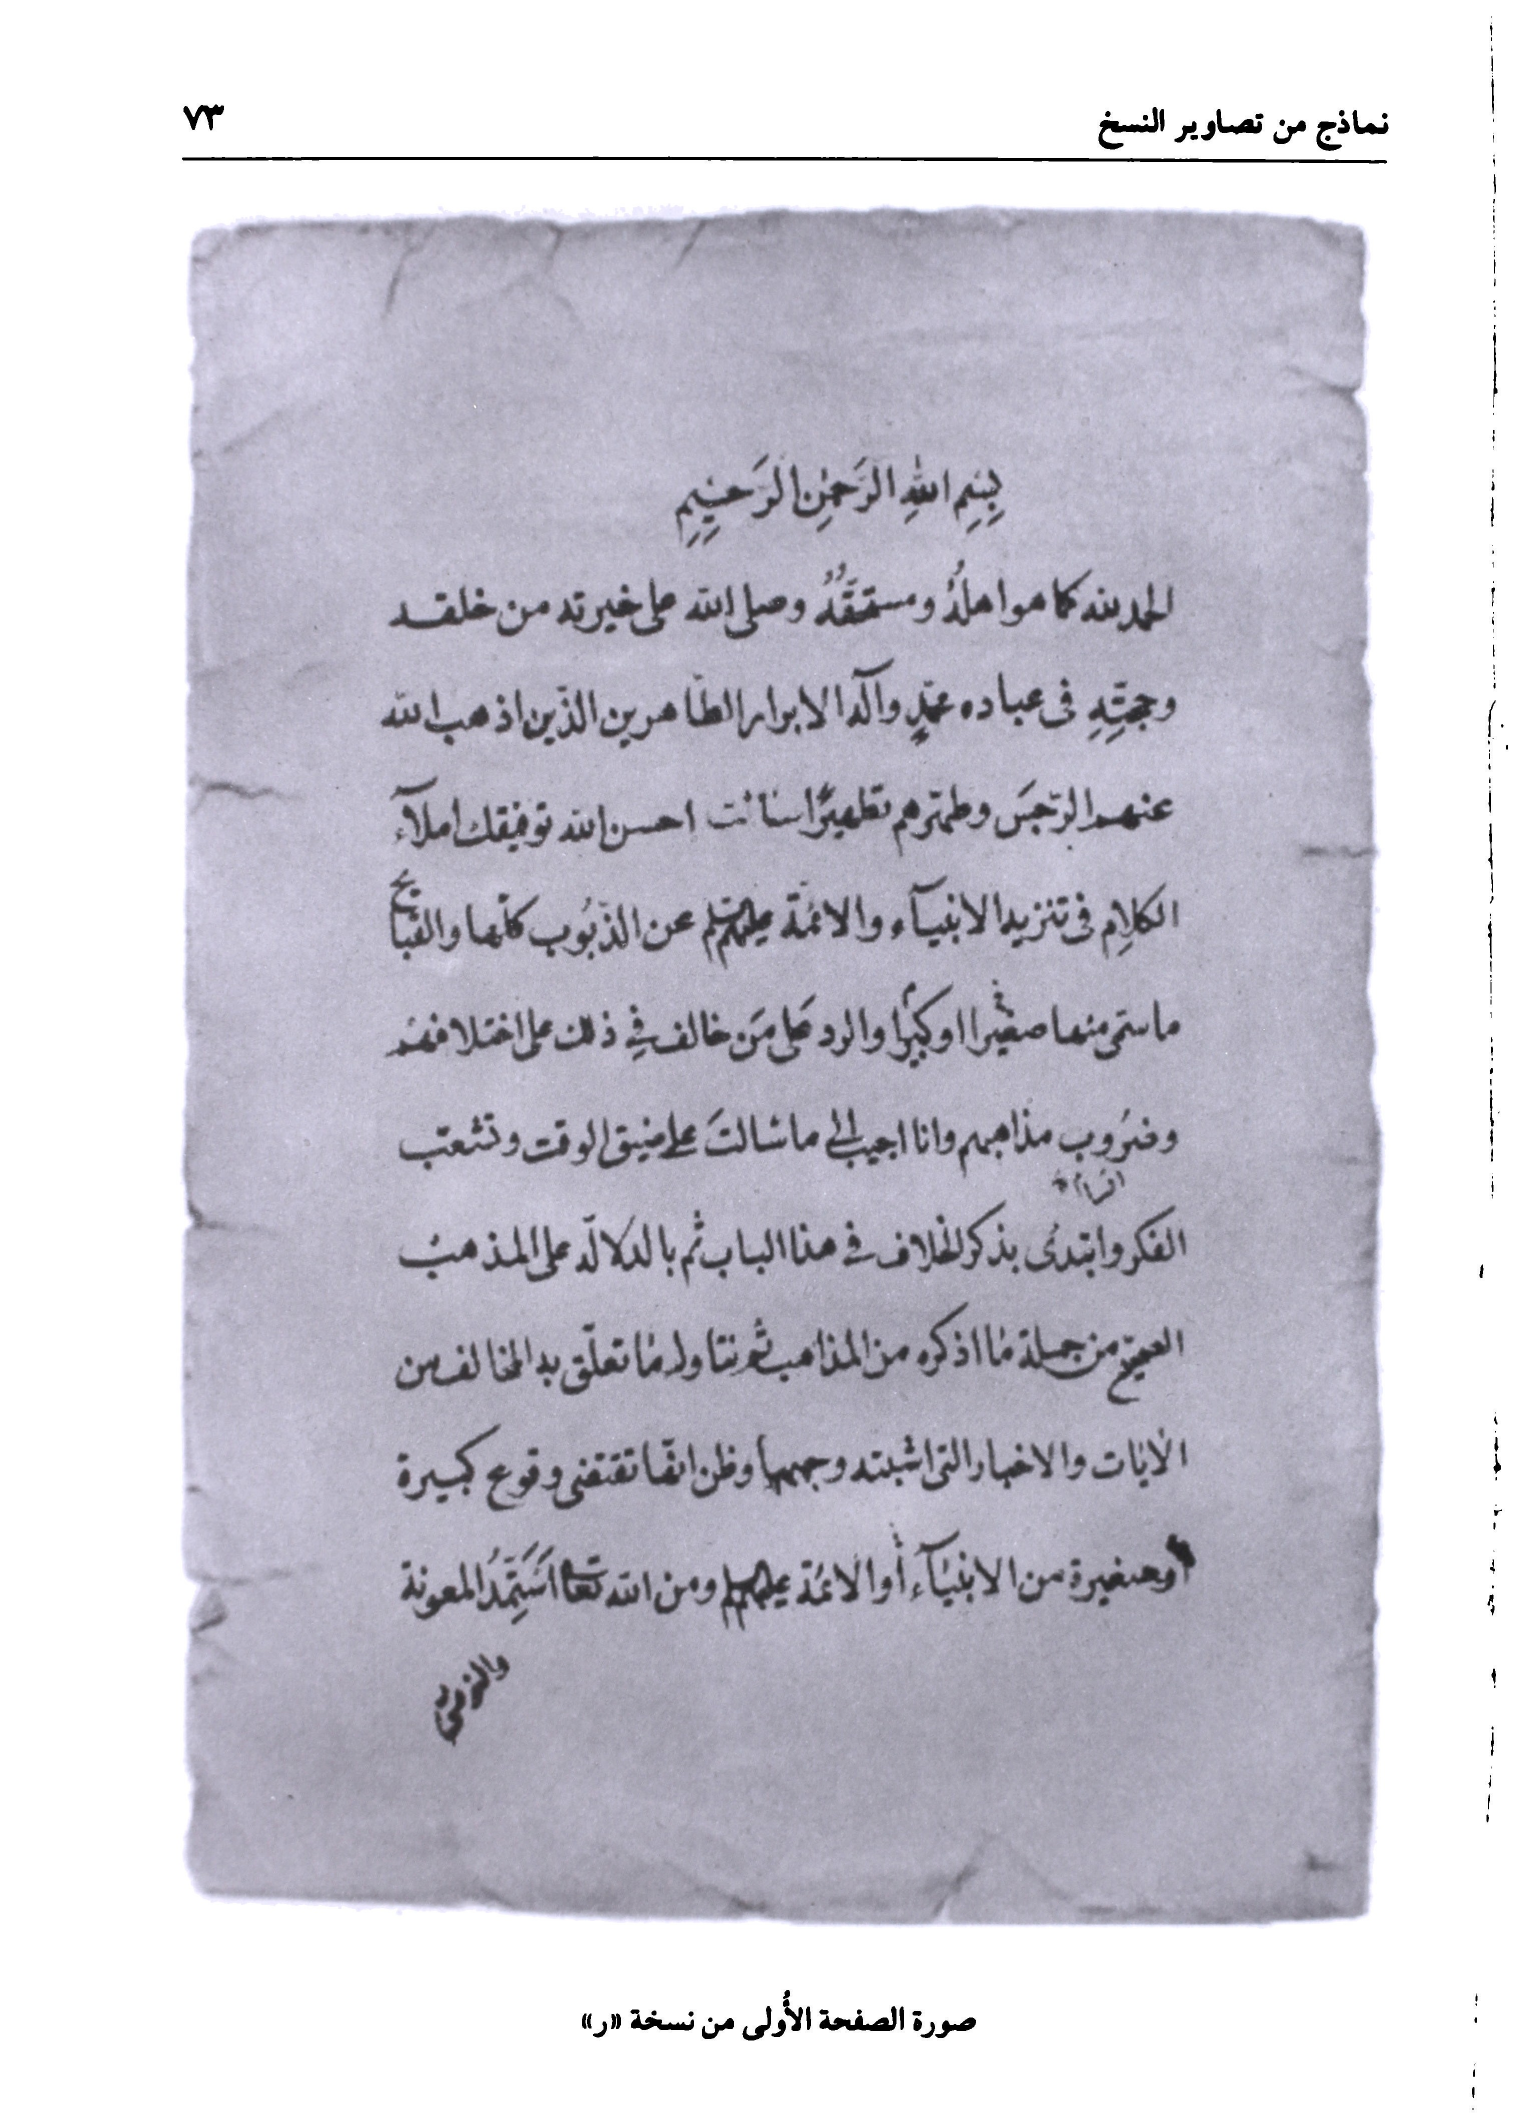 نماذج من تصاوير النسخ
٧٣
بِسْمِ اللهِ الرَّحْمٰنِ الرَّحِيْمِ
الحمد لله كما هو اهلُهُ ومستحقّهُ وصلى الله على خيرته من خلقه
وحجّتِهِ فى عباده محمّدٍ وآله الابرار الطّاهرين الذّين اذهب الله
عنهم الرّجسَ وطهّرهم تطهيرًا سئالت احسن الله توفيقك املآء
الكلامِ فى تنزيه الانبيآء والائمّة عليهم السلم عن الذّنُوب كلّها والقبايح
ما سمّى منها صغيرا او كبيرًا والرد على مَن خالف في ذلك على اختلافهم
وضرُوب مذاهبهم وانا اجيب الى ما سٔالتَ على ضيق الوقت وتشعّب
الفكر وابتدئ بذكر الخلاف في هذا الباب ثم بالدلالة على المذهب
الصحيح من جملة ما اذكره من المذاهب ثم نتاول ما تعلّق به المخالف من
الايات والاخبار التى اشبته وجهها وظن انّها تقتضى وقوع كبيرة
أو صغيرة من الانبيآء أو الائمّة عليهم السلم ومن الله تعالى اَسْتَمِدُّ المعونة
والتوفيق
صورة الصفحة الأُولى من نسخة «ر»